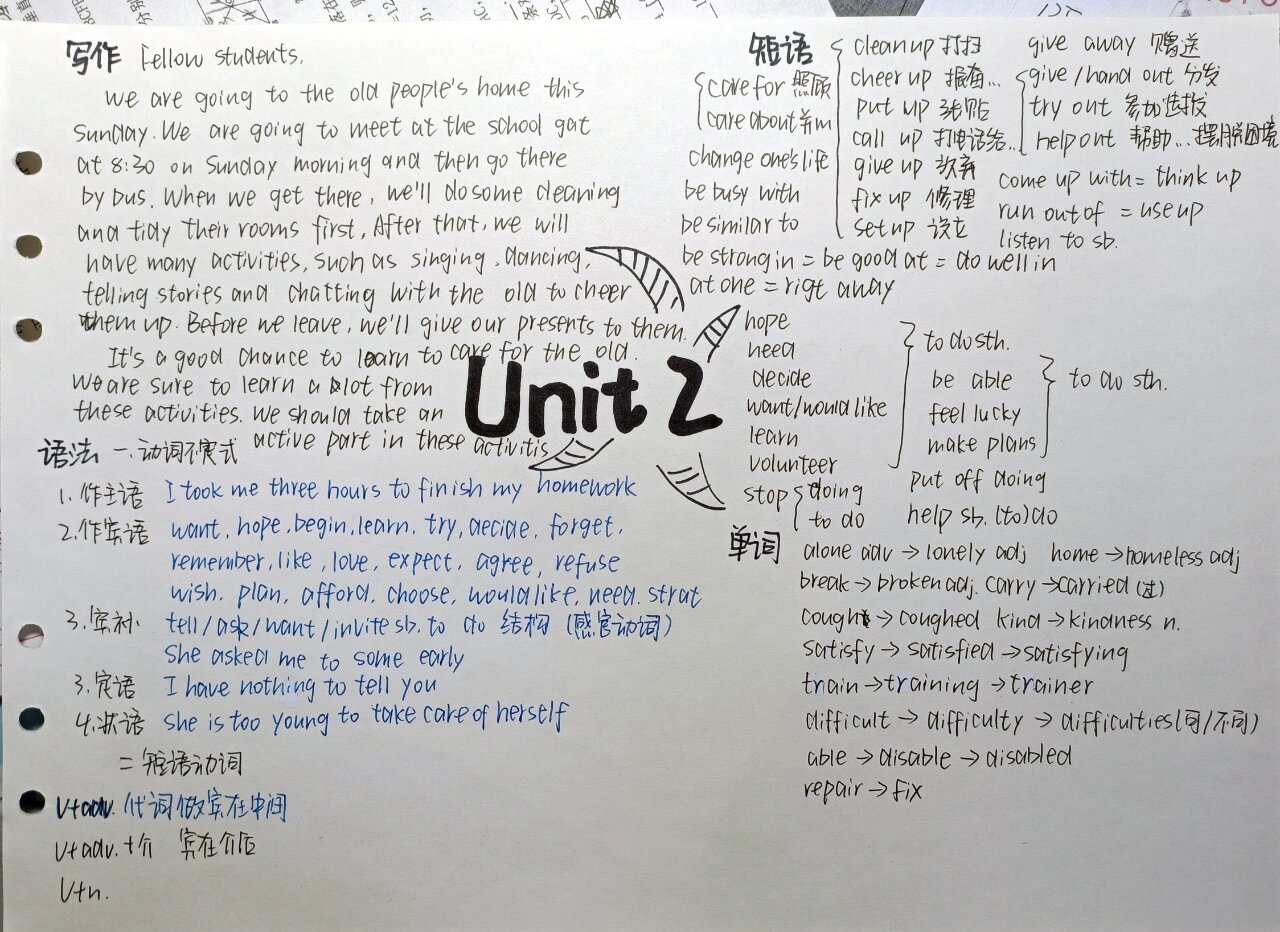 写作 Fellow students,
We are going to the old people's home this
Sunday. We are going to meet at the school gat
at 8:30 on Sunday morning and then go there
by bus. When we get there, we'll do some cleaning
and tidy their rooms first. After that, we will
have many activities, such as singing, dancing,
telling stories and chatting with the old to cheer
them up. Before we leave, we'll give our presents to them.
It's a good chance to learn to care for the old.
We are sure to learn a lot from
these activities. We should take an
active part in these activitis
Unit 2
语法 一.动词不定式
1.作主语 I took me three hours to finish my homework
2.作宾语 want, hope, begin, learn, try, decide, forget,
remember, like, love, expect, agree, refuse
wish, plan, afford, choose, would like, need. strat
3.宾补 tell/ask/want/invite sb. to do 结构 (感官动词)
She asked me to some early
3.定语 I have nothing to tell you
4.状语 she is too young to take care of herself
二 短语动词
V+adv. 代词做宾在中间
V+adv.+介 宾在介后
V+n.
短语
care for 照顾
care about 关心
change one's life
be busy with
be similar to
clean up 打扫
cheer up 振奋...
put up 张贴
call up 打电话给...
give up 放弃
fix up 修理
set up 设立
give away 赠送
give/hand out 分发
try out 参加选拔
help out 帮助...摆脱困境
come up with = think up
run out of = use up
listen to sb.
be strong in = be good at = do well in
at one = rigt away
hope
need
decide
want/would like
learn
volunteer
to do sth.
be able
feel lucky
make plans
to do sth.
stop doing
to do
put off doing
help sb. (to) do
单词 alone adv → lonely adj home → homeless adj
break → broken adj. carry → carried (过)
cough → coughed kind → kindness n.
satisfy → satisfied → satisfying
train → training → trainer
difficult → difficulty → difficulties (可/不可)
able → disable → disabled
repair → fix